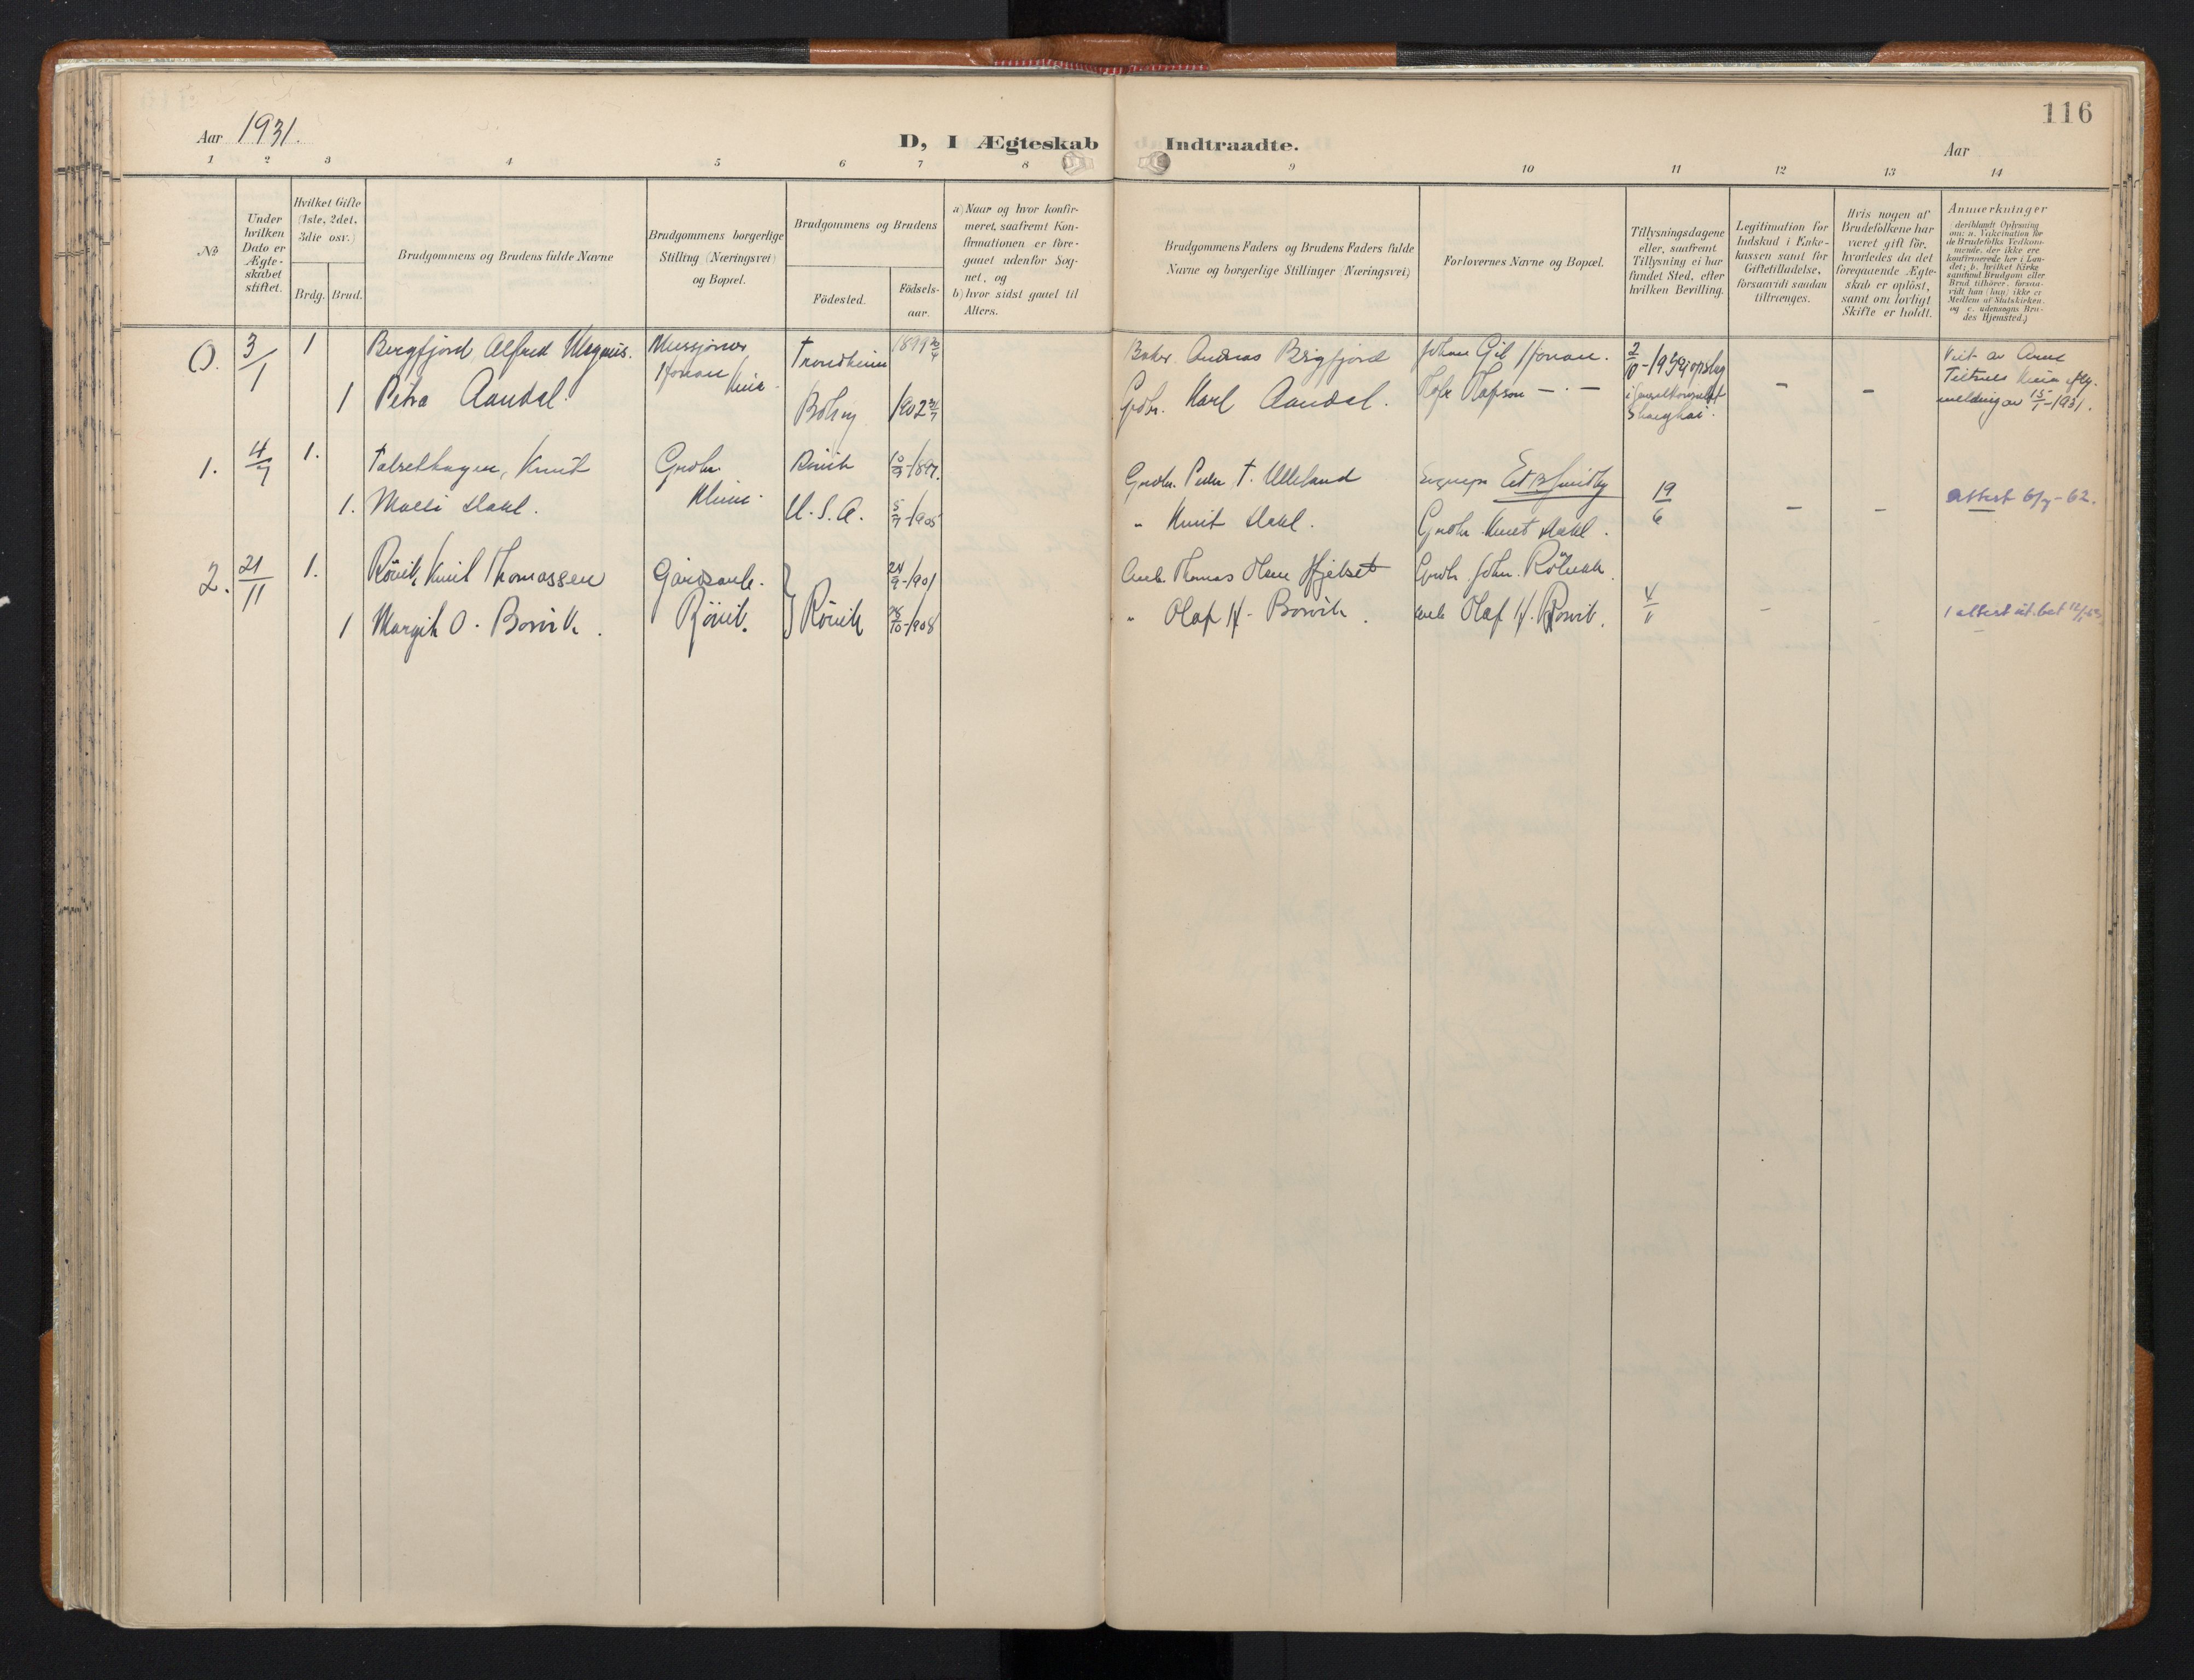 116
Aar 1931.
D, I Ægteskab Indtraadte.
Aar
1 2 3 4 5 6 7 8 9 10 11 12 13 14
No
Under
hvilken
Dato er
Ægte-
skabet
stiftet.
Hvilket Gifte
(1ste, 2det,
3die osv.)
Brdg. Brud.
Brudgommens og Brudens fulde Navne
Brudgommens borgerlige
Stilling (Næringsvei)
og Bopæl.
Brudgommens og Brudens
Födested.
Födsels-
aar.
a) Naar og hvor konfir-
meret, saafremt Kon-
firmationen er fore-
gaaet udenfor Sog-
net, og
b) hvor sidst gaaet til
Alters.
Brudgommens Faders og Brudens Faders fulde
Navne og borgerlige Stillinger (Næringsvei)
Forlovernes Navne og Bopæl.
Tillysningsdagene
eller, saafremt
Tillysning ei har
fundet Sted, efter
hvilken Bevilling.
Legitimation for
Indskud i Enke-
kassen samt for
Giftetilladelse,
forsaavidt saadan
tiltrænges.
Hvis nogen af
Brudefolkene har
været gift för,
hvorledes da det
foregaaende Ægte-
skab er oplöst,
samt om lovligt
Skifte er holdt.
Anmerkninger
(deriblandt Oplysning
om: a. Vakcination for
de Brudefolks Vedkom-
mende, der ikke ere
konfirmerede her i Lan-
det; b. hvilket Kirke-
samfund Brudgom eller
Brud tilhører, forsaa-
vidt han (hun) ikke er
Medlem af Statskirken,
og c. udensogns Bru-
des Hjemsted.)
0. 3/1 1 Bergfjord, Alfred Magnus. Missjonær Trondheim 1899 Baker Andreas Bergfjord Johan Gil Honan. 2/10-19
Honan Kina.
1 Petra Aandal. Bolsøy 1902 Grdbr. Karl Aandal. Olafson — · —
Shanghai.
Viet av Arne
Kina iflg.
melding av 15/1-1931.
1. 4/7 1. Talsethagen, Knut Grdbr. Röвik 1897. Grdbr. Peder T. Ulleland
Kleive.
1. Malli Dahl. U.S.A. 5/7-1905 " Knut Dahl. Grdbr. Knut Dahl. 19/6 – – attest 6/7-62.
2. 21/11 1. Röвik, Knut Thomassen Gårdsarb. 24/9-1901 Arb. Thomas Olsen Hjelset Grdbr. John Röвik
1 Margit O. Borvik. Röвik. Röвik 1908 " Olaf H. Borvik. Arb. Olaf H. Borvik. 4/11 – 1 attest ut.